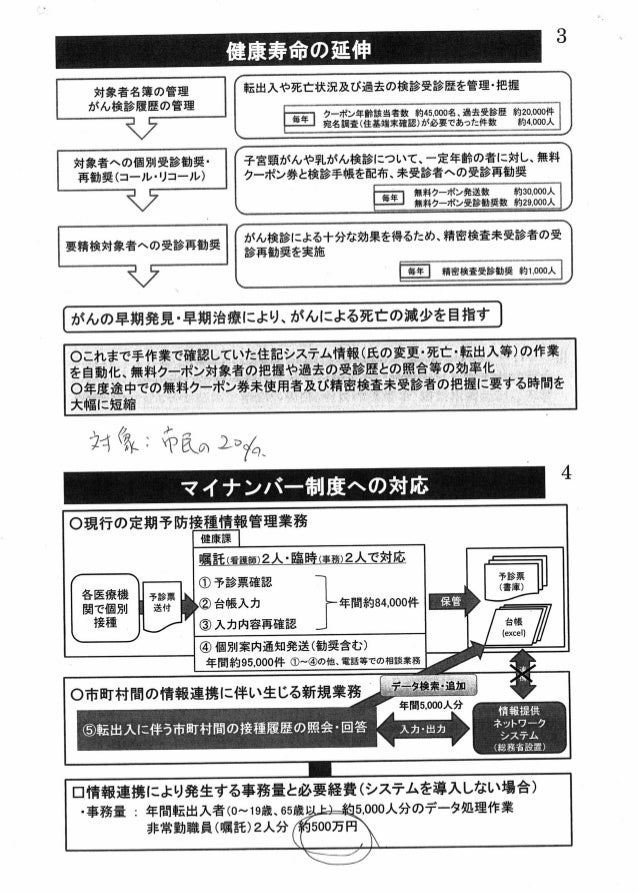 3
健康寿命の延伸
対象者名簿の管理
がん検診履歴の管理
転出入や死亡状況及び過去の検診受診歴を管理・把握
毎年
クーポン年齢該当者数 約45,000名、過去受診歴 約20,000件
宛名調査(住基端末確認)が必要であった件数 約4,000人
対象者への個別受診勧奨・
再勧奨(コール・リコール)
子宮頸がんや乳がん検診について、一定年齢の者に対し、無料
クーポン券と検診手帳を配布、未受診者への受診再勧奨
毎年
無料クーポン発送数 約30,000人
無料クーポン受診勧奨数 約29,000人
要精検対象者への受診再勧奨
がん検診による十分な効果を得るため、精密検査未受診者の受
診再勧奨を実施
毎年 精密検査受診勧奨 約1,000人
がんの早期発見・早期治療により、がんによる死亡の減少を目指す
○これまで手作業で確認していた住記システム情報(氏の変更・死亡・転出入等)の作業
を自動化、無料クーポン対象者の把握や過去の受診歴との照合等の効率化
○年度途中での無料クーポン券未使用者及び精密検査未受診者の把握に要する時間を
大幅に短縮
対象:市民の20%
4
マイナンバー制度への対応
○現行の定期予防接種情報管理業務
健康課
嘱託(看護師)2人・臨時(事務)2人で対応
各医療機
関で個別
接種
予診票
送付
① 予診票確認
② 台帳入力
③ 入力内容再確認
年間約84,000件
保管
予診票
(書庫)
台帳
(excel)
④ 個別案内通知発送(勧奨含む)
年間約95,000件 ①~④の他、電話等での相談業務
○市町村間の情報連携に伴い生じる新規業務
データ検索・追加
⑤転出入に伴う市町村間の接種履歴の照会・回答
年間5,000人分
入力・出力
情報提供
ネットワーク
システム
(総務省設置)
□情報連携により発生する事務量と必要経費(システムを導入しない場合)
・事務量 : 年間転出入者(0~19歳、65歳以上) 約5,000人分のデータ処理作業
非常勤職員(嘱託)2人分 約500万円